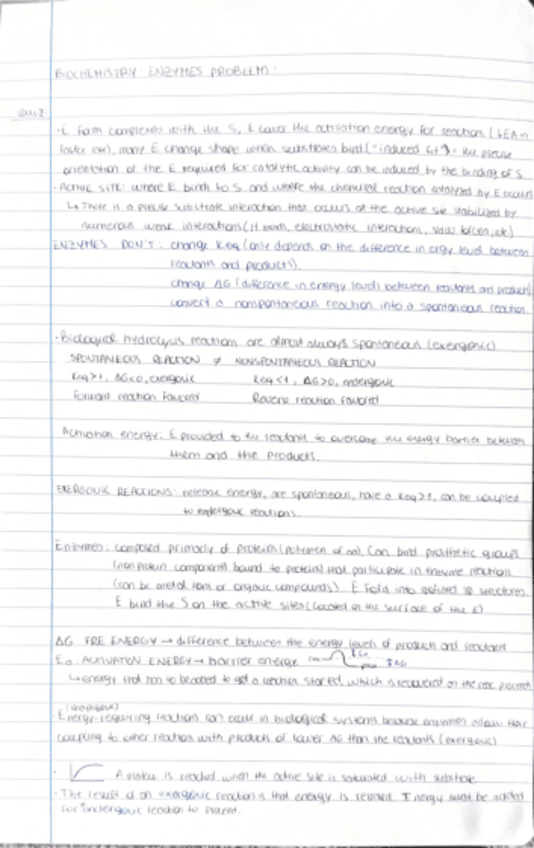 BIOCHEMISTRY: ENZYMES PROBLEMS:
· E form complexes with the S, & lower the activation energy for reaction (↓EA =
faster rxn), many E change shape when substrates bind ("induced fit") - the precise
orientation of the E required for catalytic activity can be induced by the binding of S.
· Active site: where E binds to S and where the chemical reaction catalyzed by E occurs
↳ There is a precise substrate interaction that occurs at the active site stabilized by
numerous weak interactions (H bonds, electrostatic interactions, vdw forces, etc)
ENZYMES DON'T: change Keq (only depends on the difference in ergy level between
reactants and products).
change ΔG (difference in energy levels between reactants and products)
convert a nonspontaneous reaction into a spontaneous reaction
· Biological hydrolysis reactions are almost always spontaneous (exergonic)
SPONTANEOUS REACTION ≠ NONSPONTANEOUS REACTION
Keq>1, ΔG<0, exergonic Keq<1, ΔG>0, endergonic
Forward reaction favored Reverse reaction favored
Activation energy: E provided to the reactants to overcome the energy barrier between
them and the products.
EXERGONIC REACTIONS: release energy, are spontaneous, have a Keq>1, can be coupled
to endergonic reactions.
Enzymes: composed primarly of protein (polymers of aa). Can bind prosthetic groups
(nonprotein components bound to proteins) that participate in enzyme reaction
(can be metal ions or organic compounds). E fold into defined 3D structures
E bind the S on the active sites (located on the surface of the E)
ΔG FREE ENERGY → difference between the energy levels of products and reactants
Ea ACTIVATION ENERGY → barrier energy
↳ energy that has to be added to get a reaction started, which is recovered as the rxn proceeds
(endergonic)
· Energy-requiring reactions can occur in biological systems because enzymes allow their
coupling to other reaction with products of lower ΔG than the reactants (exergonic)
· A plateau is reached when the active site is saturated with substrate.
· The result of an exergonic reaction is that energy is released. Energy must be added
for endergonic reaction to proceed.